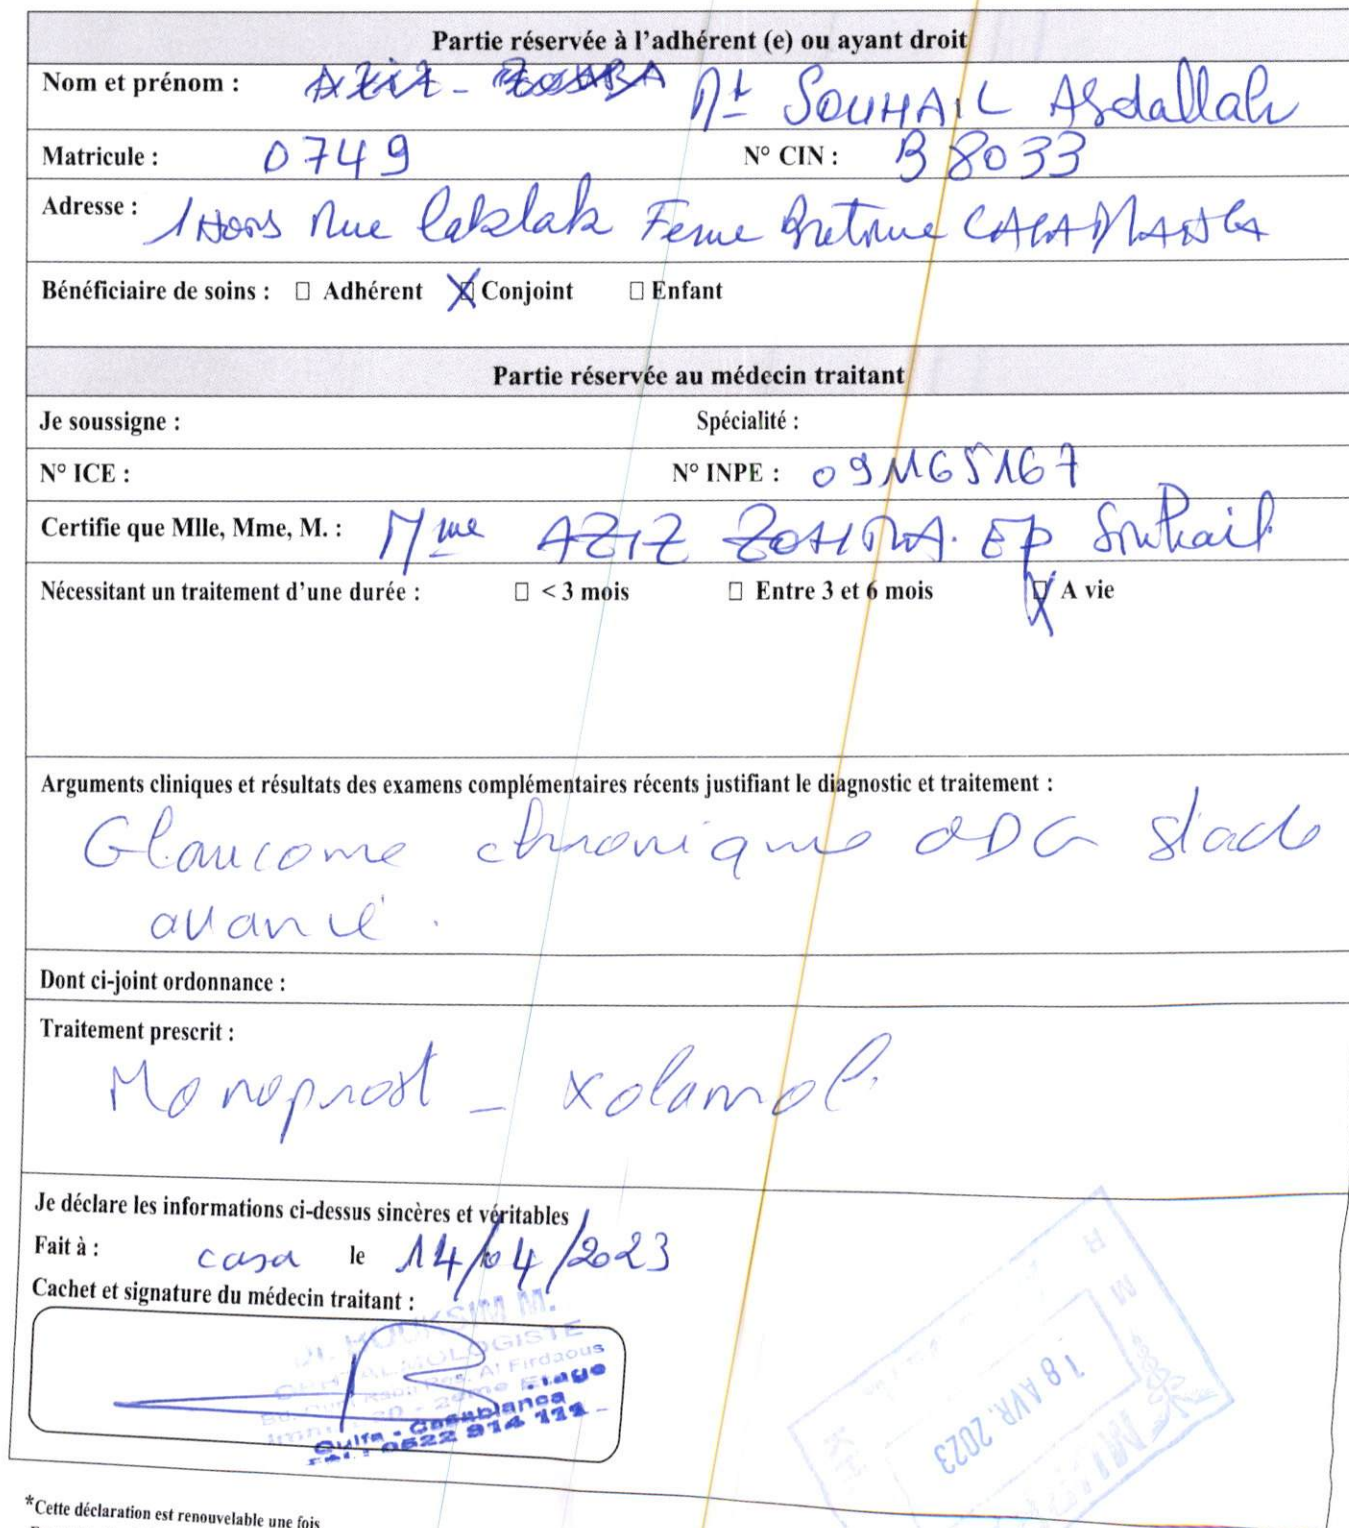 Partie réservée à l'adhérent (e) ou ayant droit
Nom et prénom : Mr SOUHAIL Abdallah
Matricule : 0749 N° CIN : B 8033
Adresse : Rue Laklak Ferme Bretonne CASABLANCA
Bénéficiaire de soins : □ Adhérent ☒ Conjoint □ Enfant
Partie réservée au médecin traitant
Je soussigne : Spécialité :
N° ICE : N° INPE : 091165167
Certifie que Mlle, Mme, M. : Mme AZIZ ZOHRA. EP Souhail
Nécessitant un traitement d'une durée : □ < 3 mois □ Entre 3 et 6 mois ☒ A vie
Arguments cliniques et résultats des examens complémentaires récents justifiant le diagnostic et traitement :
Glaucome chronique ODG stade
avancé.
Dont ci-joint ordonnance :
Traitement prescrit :
Monoprost - Xolamol
Je déclare les informations ci-dessus sincères et véritables
Fait à : casa le 14/04/2023
Cachet et signature du médecin traitant :
Al Firdaous
2ème Etage
Oulfa - Casablanca
Tél : 0522 914 111
18 AVR. 2023
*Cette déclaration est renouvelable une fois